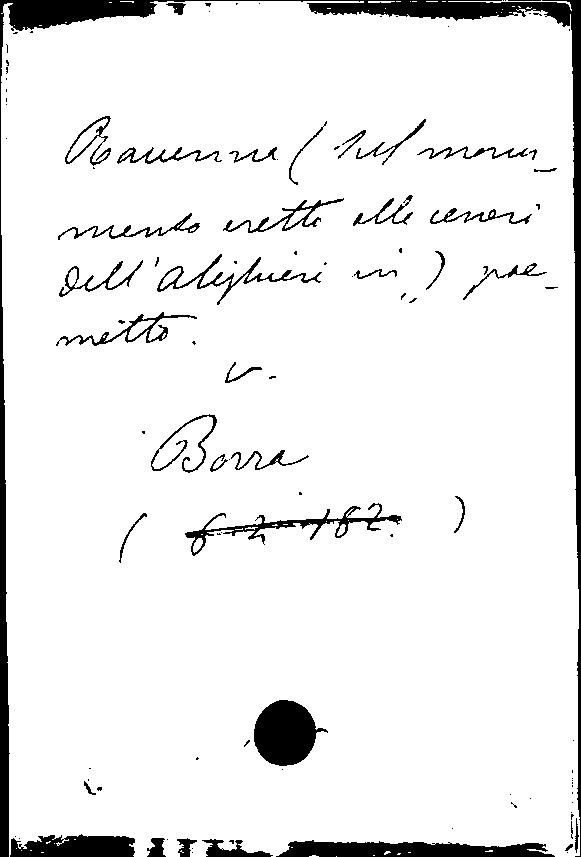 Ravenna (Sul monu-
mento eretto alle ceneri
dell'Alighieri in „) poe-
metto.
v.
Borra
( 6-2-182. )